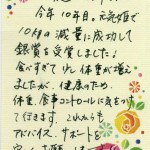 今年10年目。元気姫で
10kgの減量に成功して
銀賞を受賞しました！
食べすぎて少し体重が増え
ましたが、健康のため、
体重、食事コントロールに気をつけ
て行きます。これからも
アドバイス、サポートを